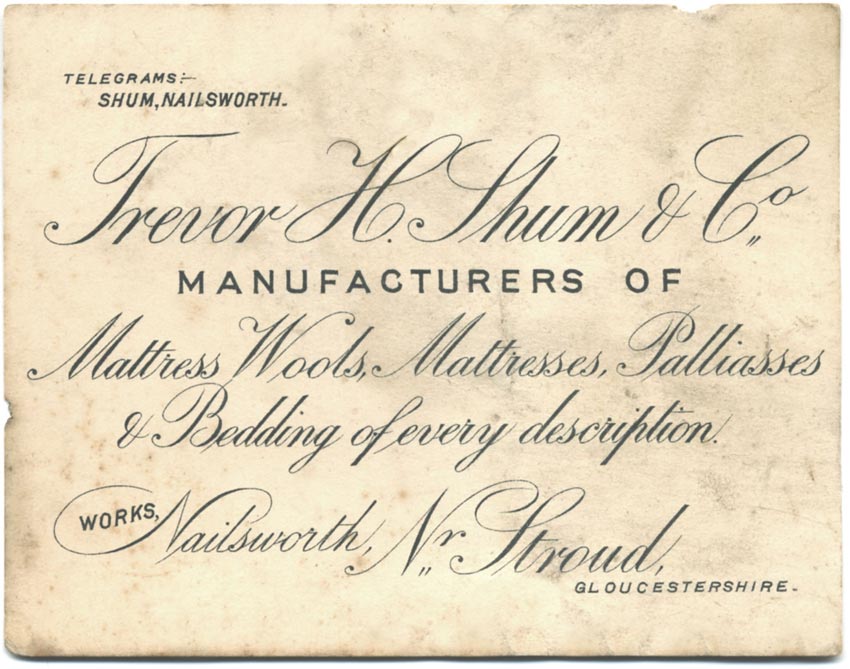 TELEGRAMS:-
SHUM, NAILSWORTH.
Trevor H. Shum & Co.,
MANUFACTURERS OF
Mattress Wools, Mattresses, Palliasses
& Bedding of every description.
WORKS, Nailsworth, Nr. Stroud,
GLOUCESTERSHIRE.